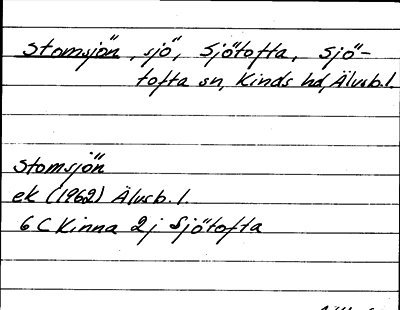 Stomsjön, sjö, Sjötofta, Sjö-
tofta sn, Kinds hd, Älvsb. l.
Stomsjön
ek (1962) Älvsb. l.
6 C Kinna 2j Sjötofta